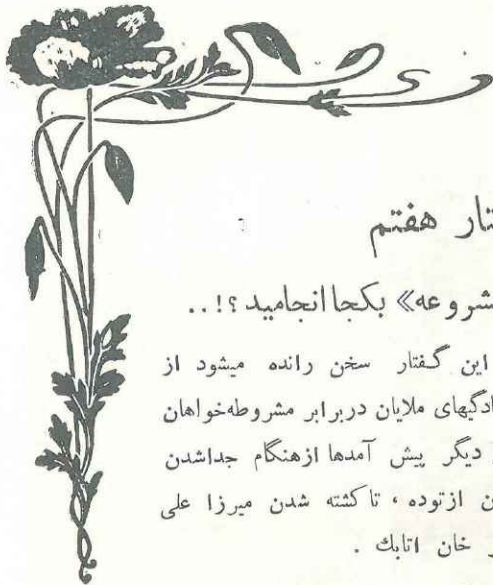 تار هفتم
شروعه» بکجا انجامید ؟!..
این گفتار سخن رانده میشود از
ادگیهای ملایان در برابر مشروطه‌خواهان
دیگر پیش آمدها از هنگام جداشدن
ن از توده ، تا کشته شدن میرزا علی
خان اتابك .